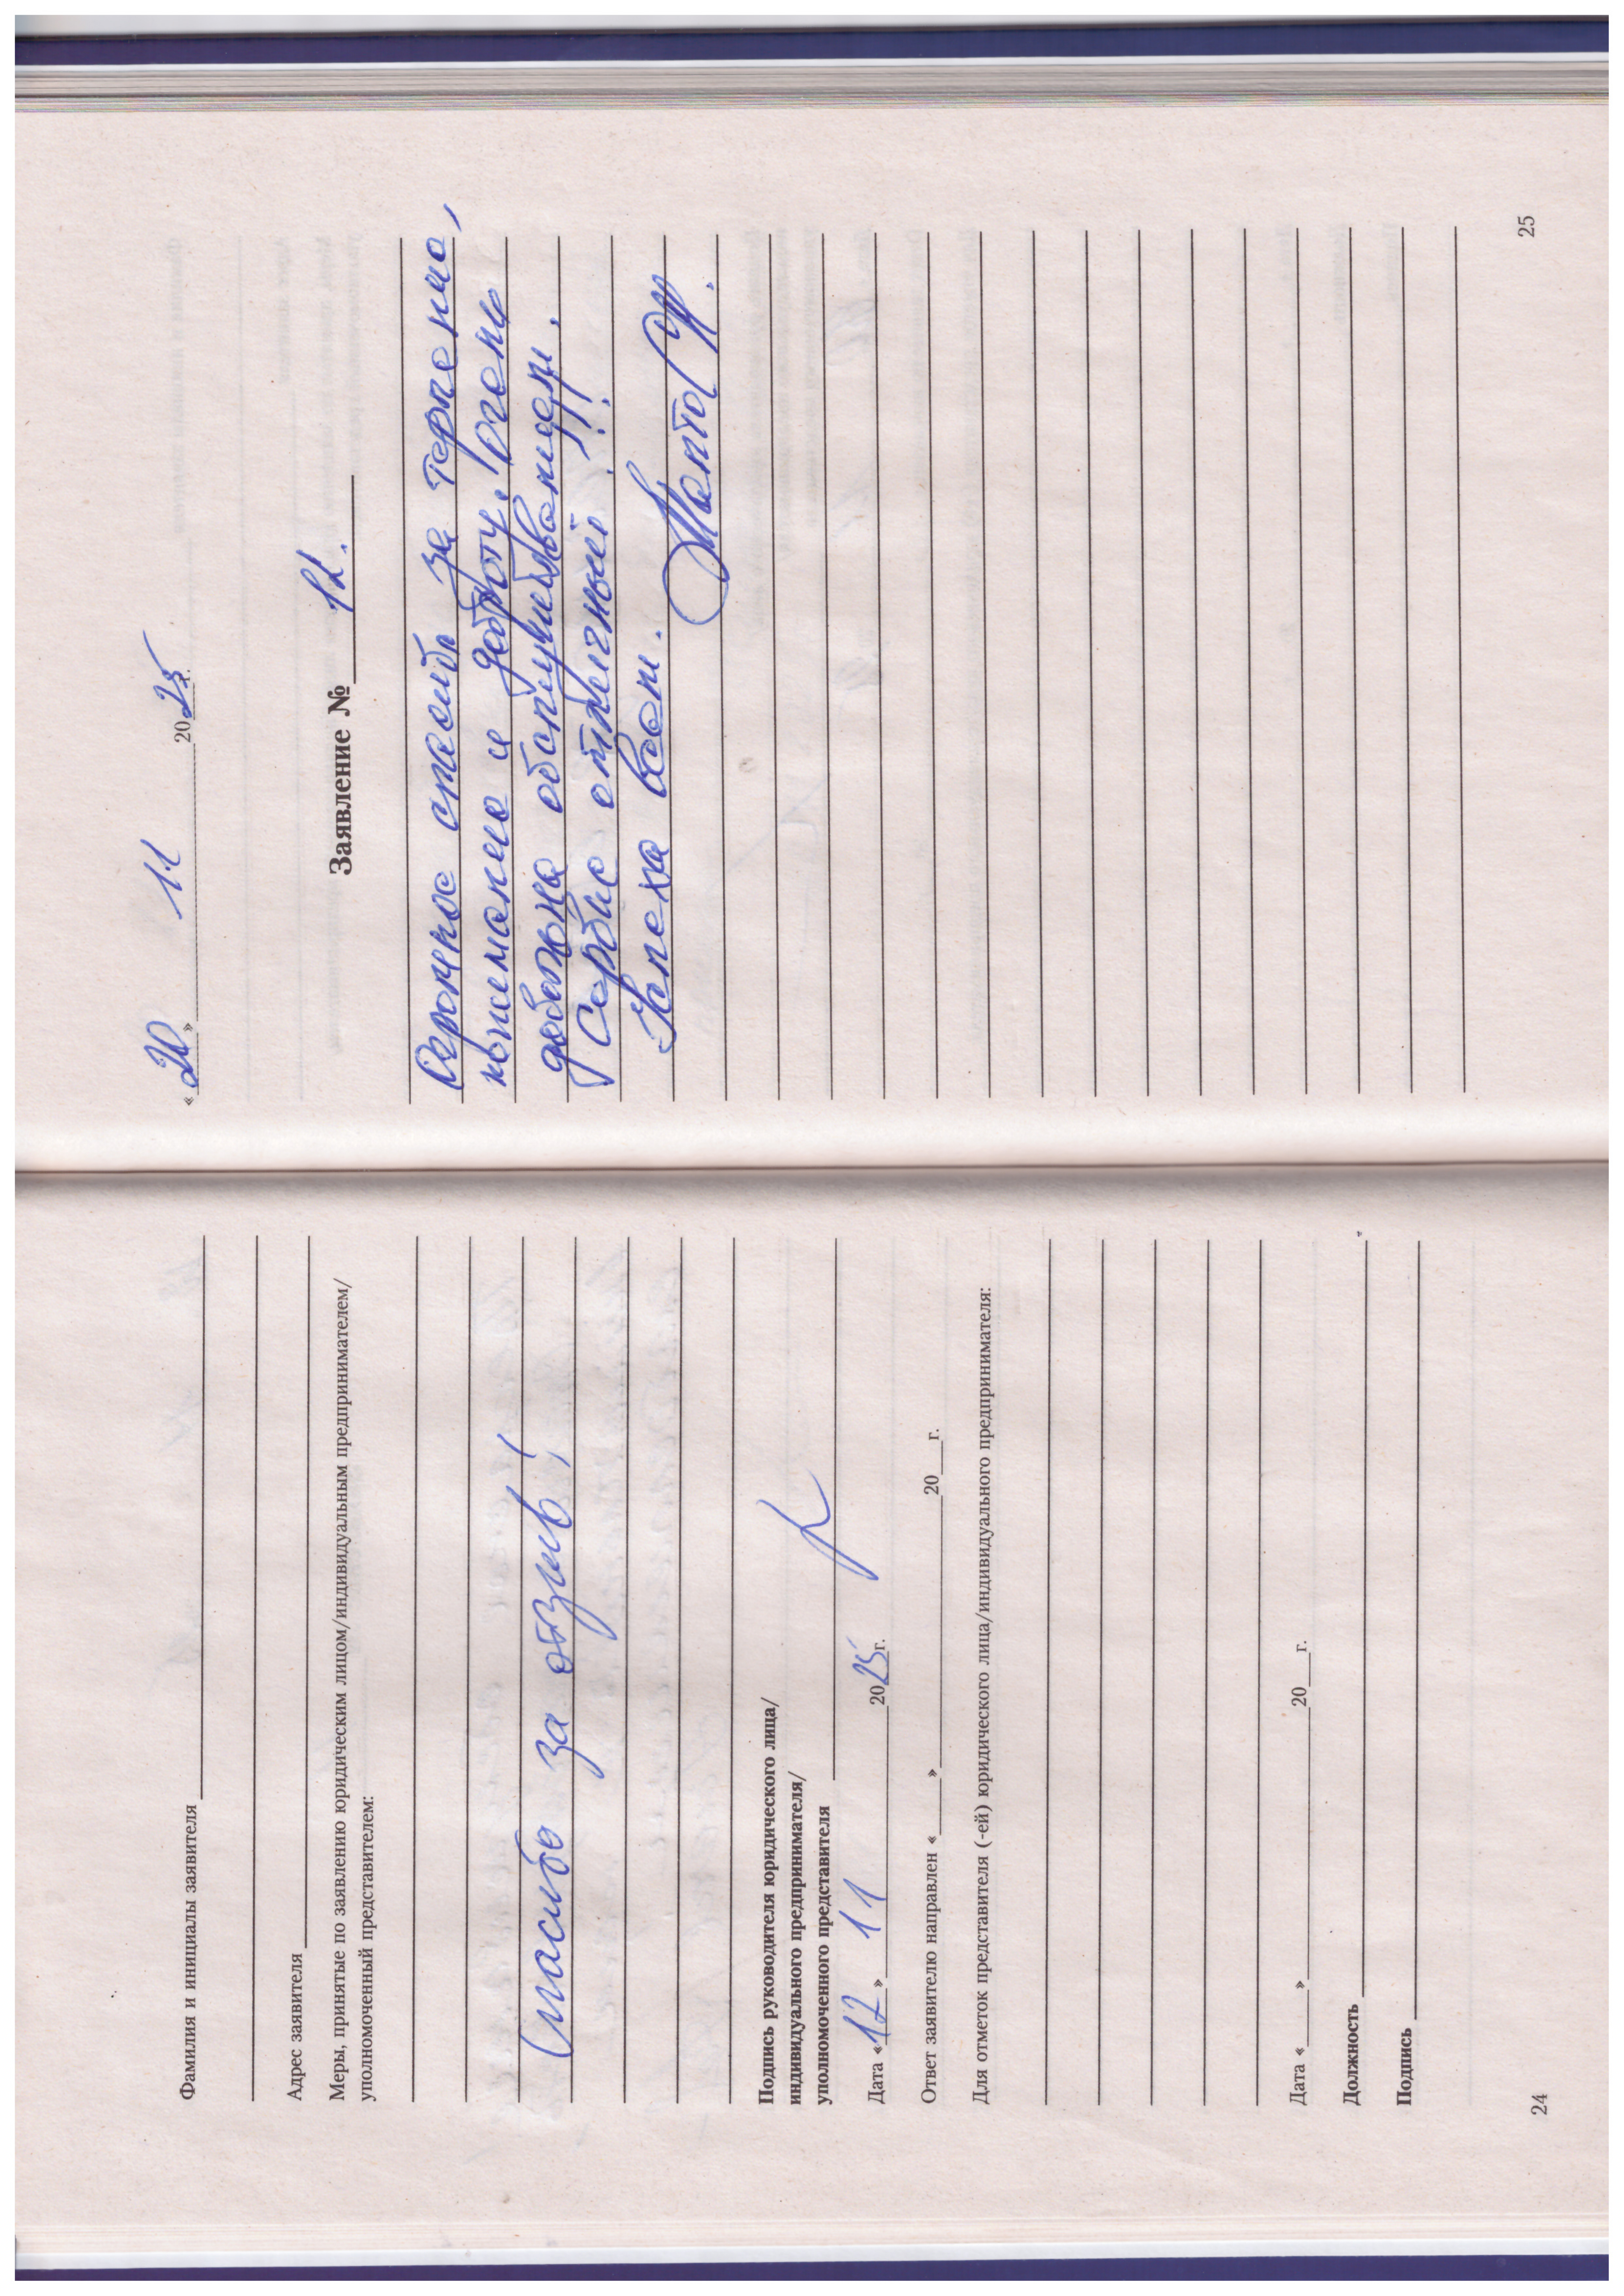 Фамилия и инициалы заявителя
Адрес заявителя
Меры, принятые по заявлению юридическим лицом/индивидуальным предпринимателем/
уполномоченный представителем:
Спасибо за отзыв!
Подпись руководителя юридического лица/
индивидуального предпринимателя/
уполномоченного представителя
Дата «12» 11 2025г.
Ответ заявителю направлен «___» ___ 20__г.
Для отметок представителя (-ей) юридического лица/индивидуального предпринимателя:
Дата «___» ___ 20__г.
Должность
Подпись
24
«20» 11 2025г.
Заявление № 12.
Огромное спасибо за терпение,
понимание и доброту! Очень
довольна обслуживанием.
Сервис отличный!!!
Успеха всем.
25